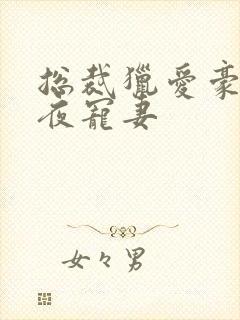 总裁獵愛豪
夜寵妻
女々男